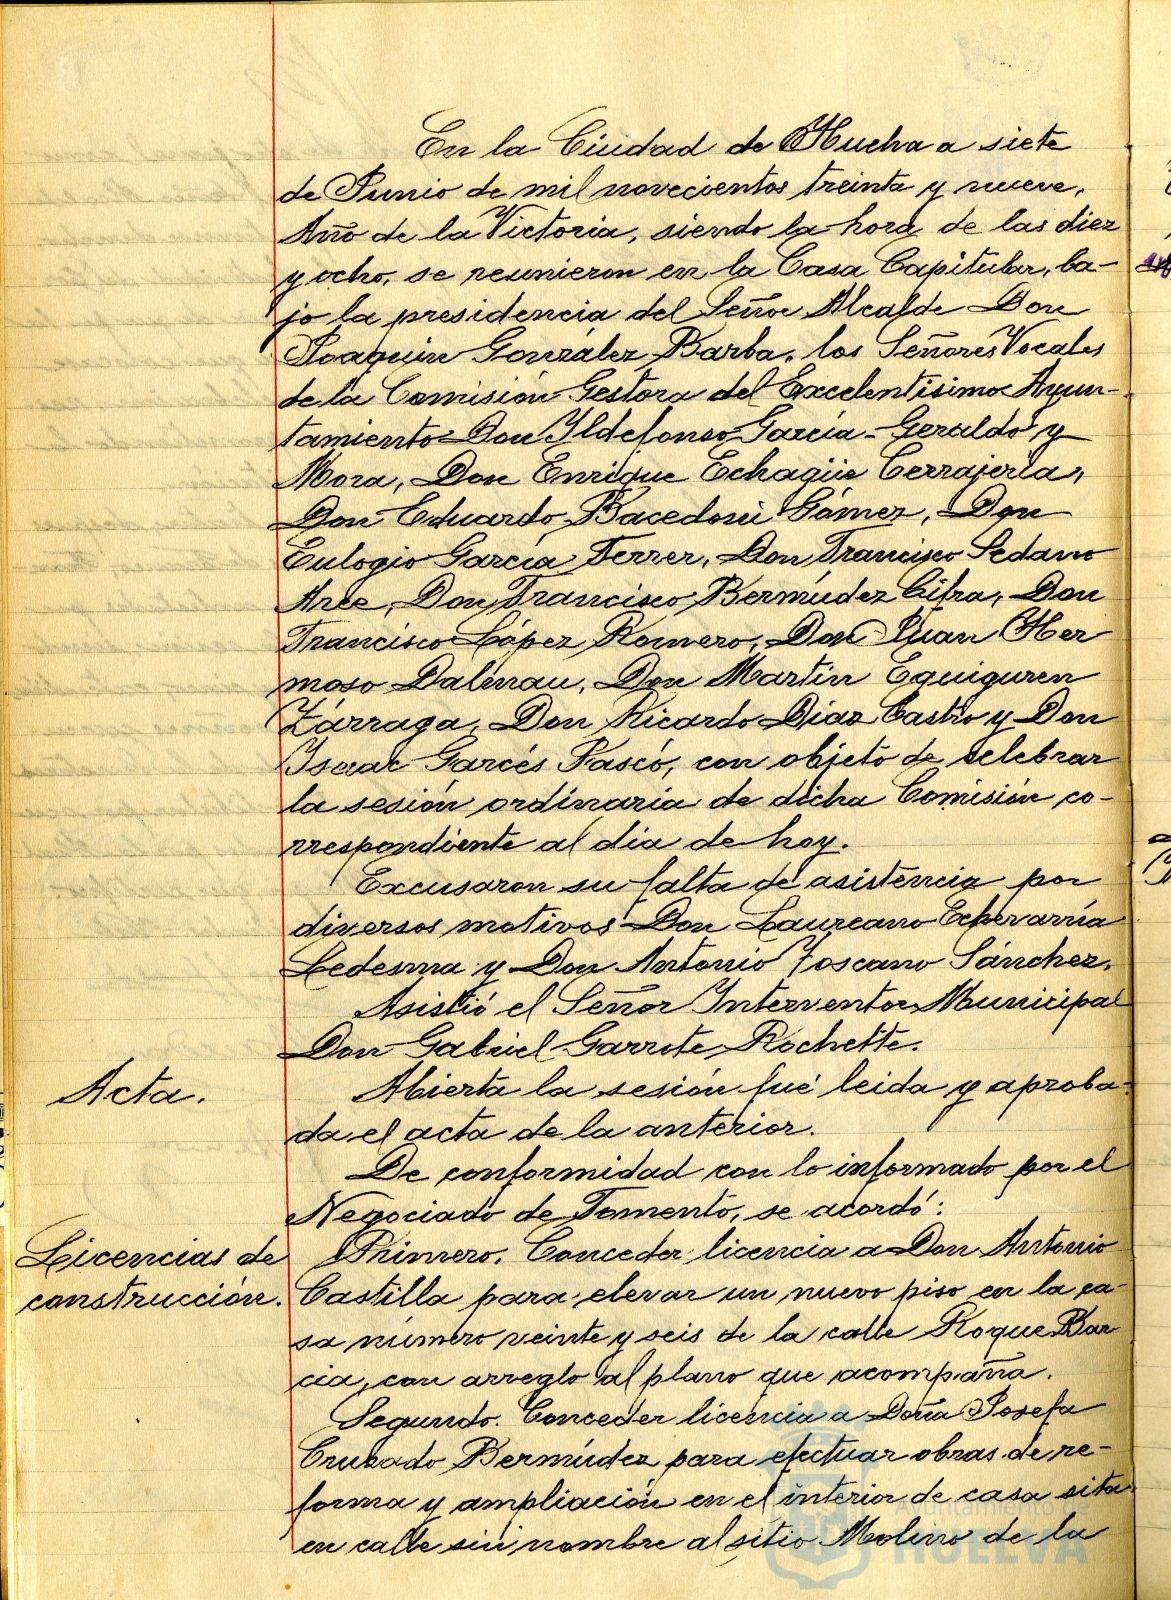 En la Ciudad de Huelva a siete
de Junio de mil novecientos treinta y nueve,
Año de la Victoria, siendo la hora de las diez
y ocho, se reunieron en la Casa Capitular, ba-
jo la presidencia del Señor Alcalde Don
Joaquín González Barba, los Señores Vocales
de la Comisión Gestora del Excelentísimo Ayun-
tamiento Don Ildefonso García-Geraldo y
Mora, Don Enrique Echagüe Cerrajería,
Don Eduardo Bacedoni Gómez, Don
Eulogio García Ferrer, Don Francisco Sedano
Arce, Don Francisco Bermúdez Cifra, Don
Francisco López Romero, Don Juan Her
moso Dalmau, Don Martín Eguiguren
Zárraga, Don Ricardo Díaz Castro y Don
Isaac Garcés Pascó, con objeto de celebrar
la sesión ordinaria de dicha Comisión co-
rrespondiente al día de hoy.
Excusaron su falta de asistencia por
diversos motivos Don Laureano Echevarría
Ledesma y Don Antonio Toscano Sánchez.
Asistió el Señor Interventor Municipal
Don Gabriel Garrote Rochette.
Acta.
Abierta la sesión fué leida y aproba-
da el acta de la anterior.
De conformidad con lo informado por el
Negociado de Fomento, se acordó:
Licencias de
construcción.
Primero. Conceder licencia a Don Antonio
Castilla para elevar un nuevo piso en la ca-
sa número veinte y seis de la calle Roque Bar
cia, con arreglo al plano que acompaña.
Segundo. Conceder licencia a Doña Josefa
Cruzado Bermúdez para efectuar obras de re-
forma y ampliación en el interior de casa sita
en calle sin nombre al sitio Molino de la
HUELVA